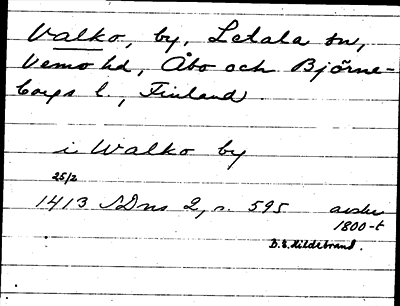 Valko, by, Letala sn,
Vemo hd, Åbo och Björne-
borgs l., Finland
i Walko by
25/2
1413 SDns 2, s. 595 avskr
1800-t
B.E. Hildebrand.